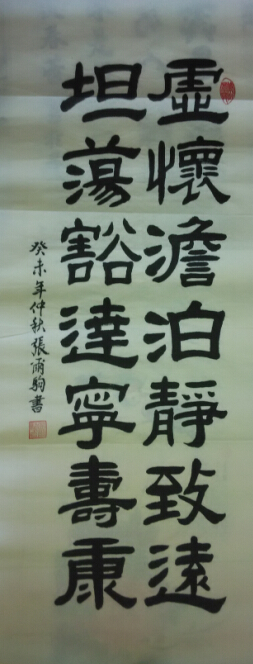 虛懷澹泊靜致遠
坦蕩豁達寧壽康
癸未年仲秋張雨駒書